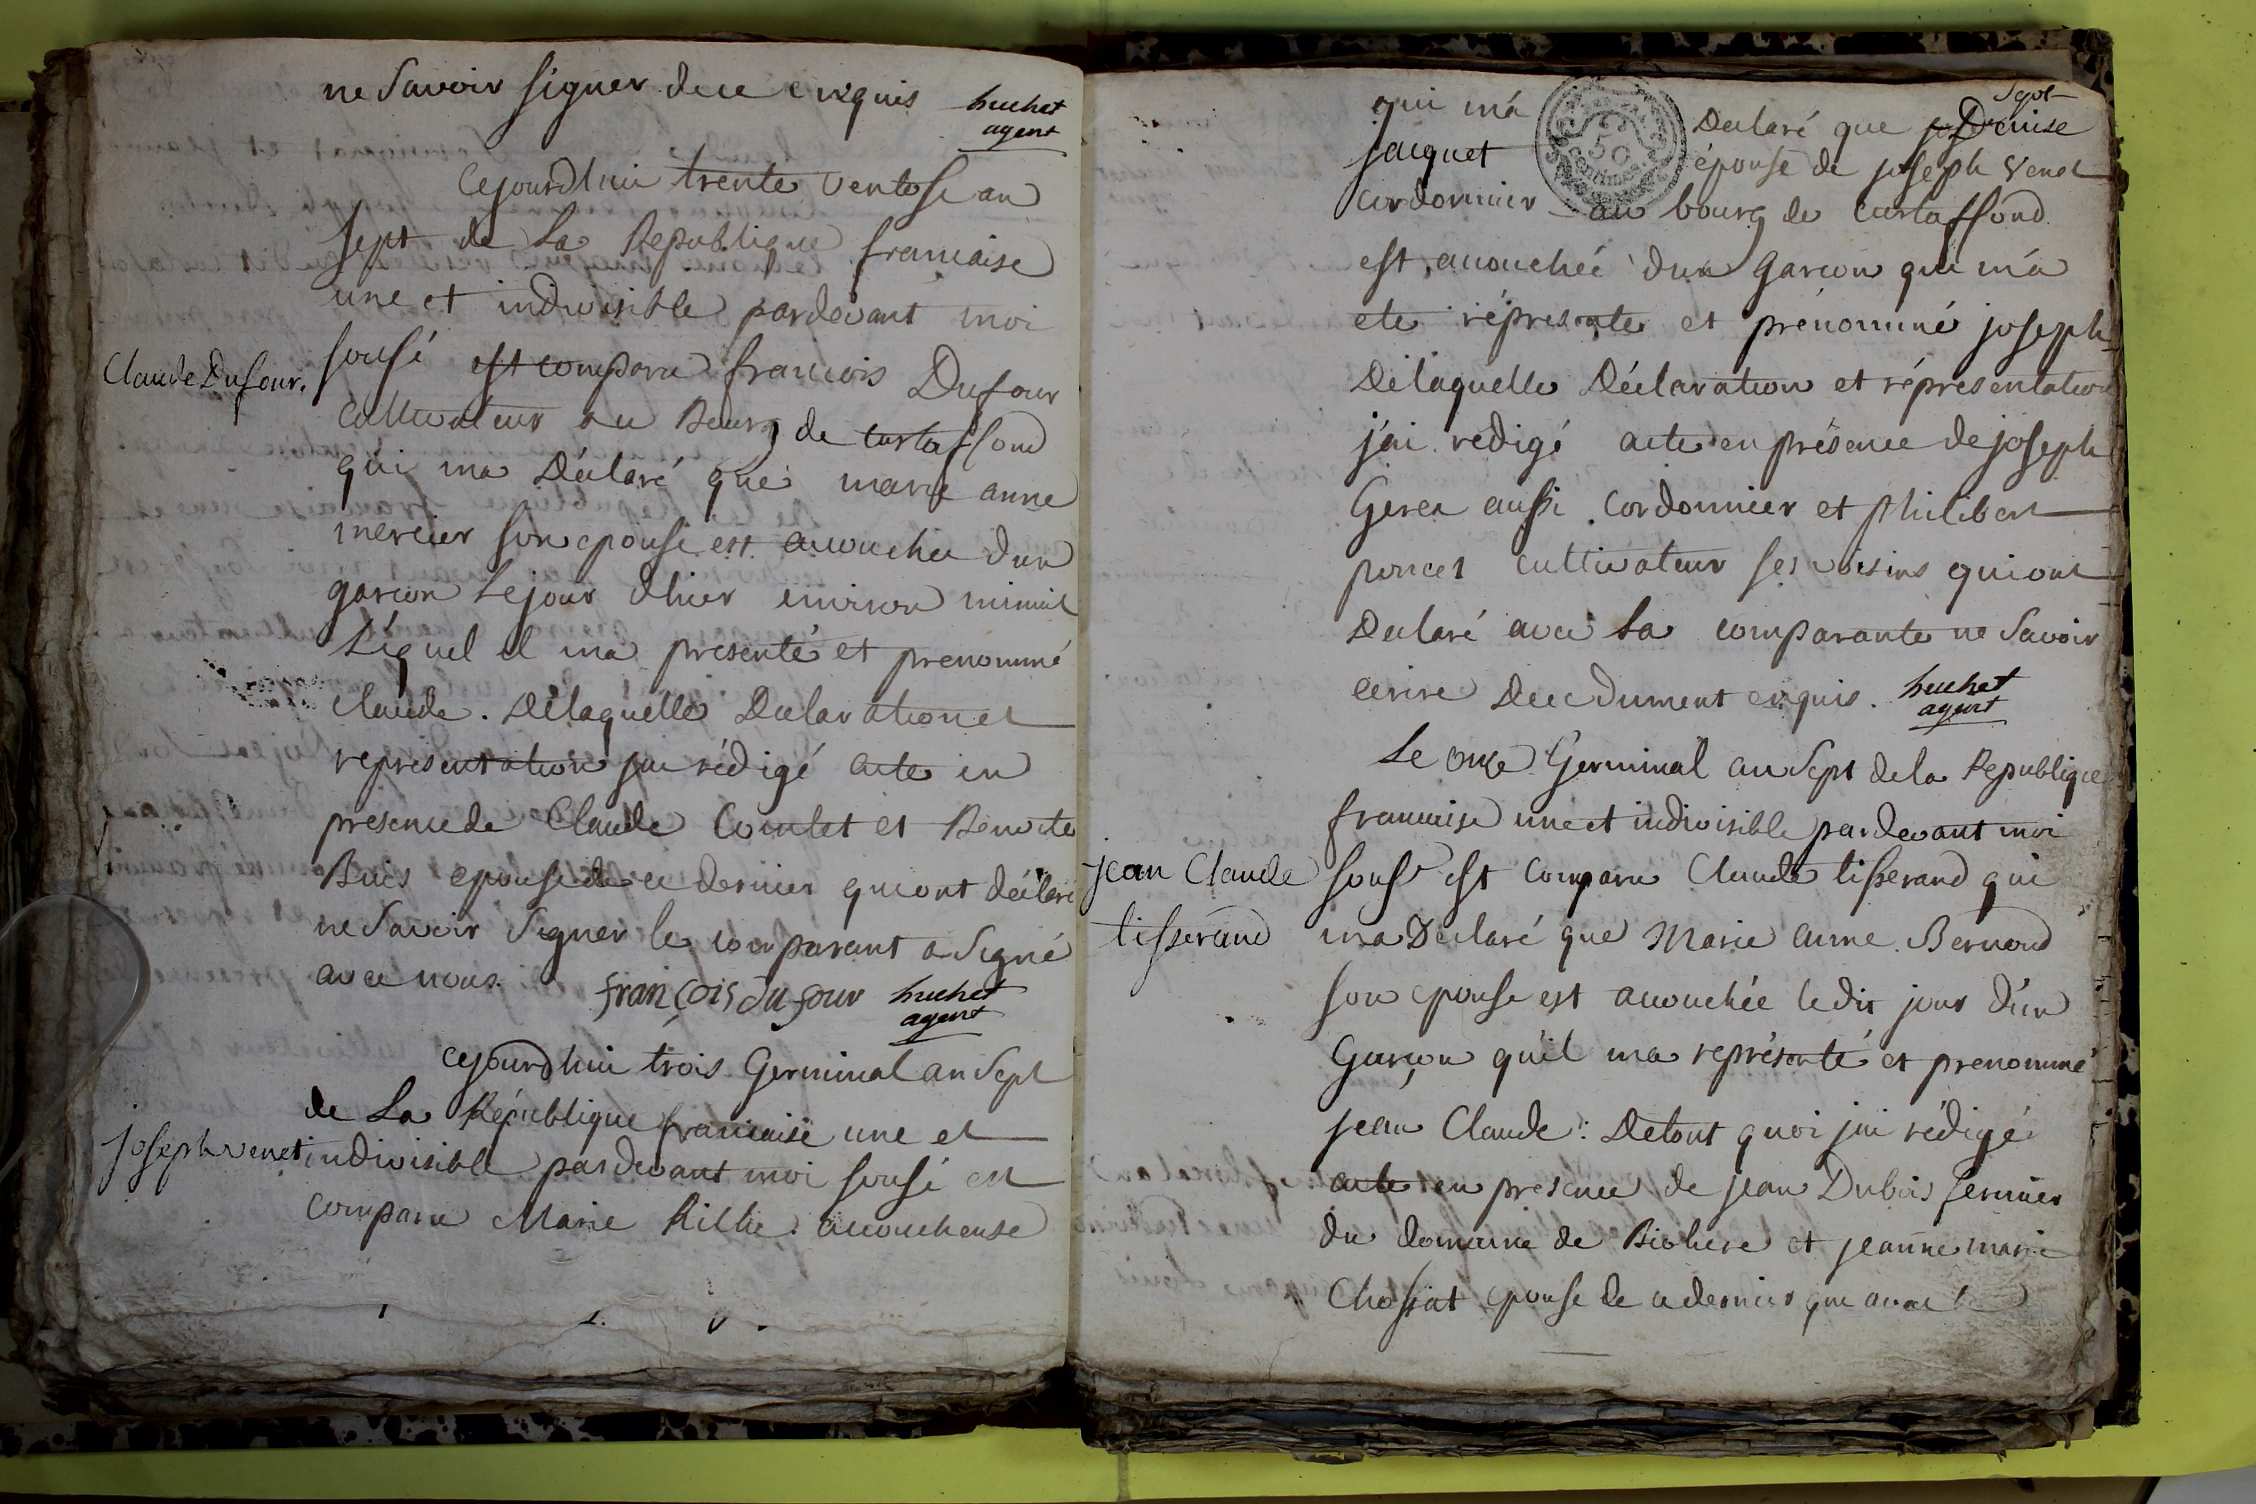 ne Savoir signer dece enquis huchet
agent
Cejourdhui trente ventose an
sept de La Republique francaise
une et indivisible pardevant moi
Claude Dufour. sousé est comparu francois Dufour
Cultivateur au Bourg de curtaffond
qui ma Déclaré que marie anne
mercier son epouse est accouchée dun
garcon Lejour dhier environ minuit
Léquel il ma presenté et prenommé
Claude. Delaquelle Declaration et
representation jai rédigé acte en
presence de Claude Comlet et Benoite
Buis epouse de ce dernier qui ont déclaré
ne Savoir Signer le comparant a Signé
avec nous. françois dufour huchet
agent
cejourdhui trois Germinal an Sept
de La République francaise une et
joseph venet indivisible pardevant moi sousé est
comparu Marie accoucheuse
qui má Declaré que Denise
jacquet épouse de joseph Venet
50 centimes
cordonnier au bourg de curtaffond
est accouchée dun Garcon que má
ete réprésentée et prénommé joseph
Délaquelle Déclaration et répresentation
j'ai rédigé acte en présence de joseph
aussi Cordonnier et philibert
poncet cultivateur ses voisins qui ont
Declaré avec La comparante ne Savoir
ecrire Dece Dument enquis. huchet
agent
Le onze Germinal an Sept de la Republique
francaise une et indivisible pardevant moi
jean Claude sousé est comparu Claude tisserand qui
tisserand ma Declaré que Marie anne Bernard
son epouse est accouchée ledit jour d'un
Garçon qu'il ma représenté et prenommé
jean Claude. Detout quoi jai rédigé
acte en presence de jean Dubois fermier
du domaine de et jeanne marie
Chossat epouse de cedernier que avec le